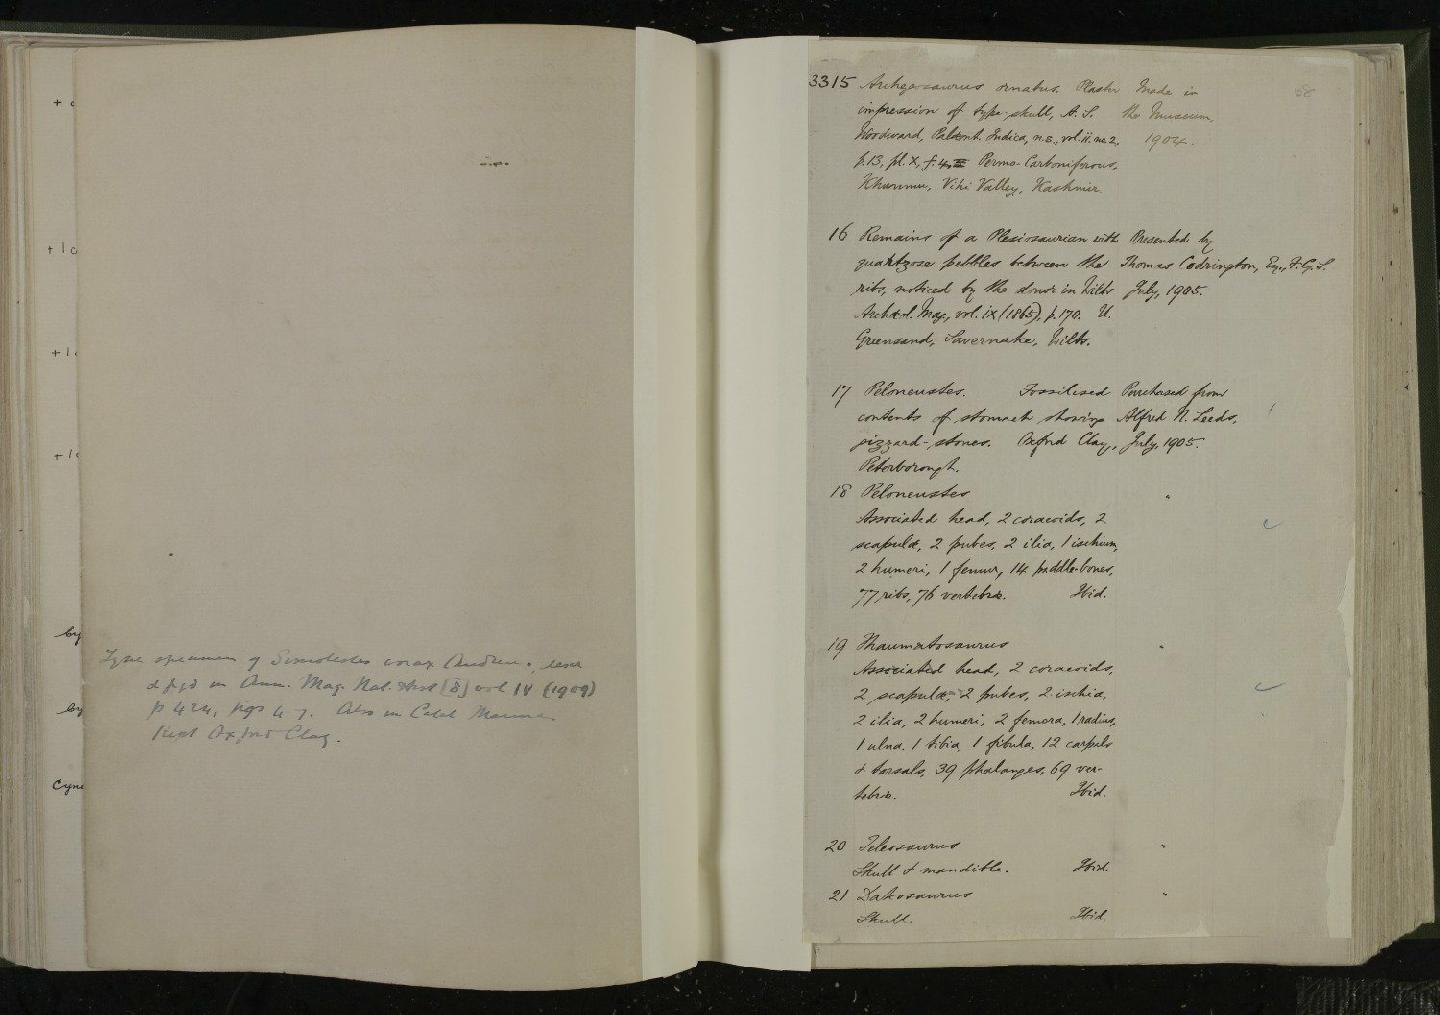 +
+ 1 c
+ 1
+ 1
by
by
Cyno
Type specimen of Simolestes vorax Andrews, desc
& figd in Ann. Mag. Nat. Hist [8] vol IV (1909)
p 424, figs 4-7. Also in Catal Marine
Rept Oxford Clay.
68
3315 Archegosaurus ornatus. Plaster Made in
impression of type-skull, A. S. the Museum,
Woodward, Palæont. Indica, n.s., vol. ii. no. 2, 1904.
p. 13, pl. X, f. 4. Permo-Carboniferous,
Khunmu, Vihi Valley, Kashmir.
16 Remains of a Plesiosaurian with Presented by
quartzose pebbles between the Thomas Codrington, Esq., F.G.S.
ribs, noticed by the donor in Wilts July, 1905.
Archæol. Mag., vol. ix (1865), p. 170. U.
Greensand, Savernake, Wilts.
17 Peloneustes. Fossilised Purchased from
contents of stomach showing Alfred N. Leeds,
gizzard-stones. Oxford Clay, July, 1905.
Peterborough.
18 Peloneustes "
Associated head, 2 coracoids, 2
scapulæ, 2 pubes, 2 ilia, 1 ischium,
2 humeri, 1 femur, 14 paddle-bones,
77 ribs, 76 vertebræ. Ibid.
19 Thaumatosaurus "
Associated head, 2 coracoids,
2 scapulæ, 2 pubes, 2 ischia,
2 ilia, 2 humeri, 2 femora, 1 radius,
1 ulna, 1 tibia, 1 fibula, 12 carpals
& tarsals, 39 phalanges, 69 ver-
tebræ. Ibid.
20 Teleosaurus "
Skull & mandible. Ibid.
21 Dakosaurus "
Skull. Ibid.